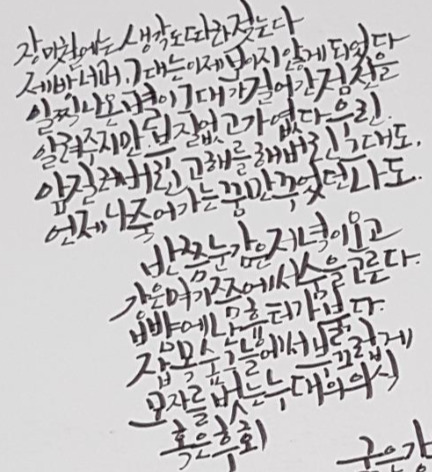 장마철에는 생각도 따라 젖는다
제방 너머, 그대는 이제 보이지 않게 되었다
일찍 나온 별이 그대가 걸어간 짐전을
알려주지만. 부질없고 가엾다 우린.
앞질러버린 고해를 해버린 그대도.
언제나 죽어가는 꿈만 꾸었던 나도.
반쯤 눈감은 저녁이 오고
강은 여기쯤에서 숨을 고른다.
뺨에 남은 흉터가 깊다.
잡목숲 그늘에서 부끄럽게
모자를 벗는 누대의 의식
혹은 후회